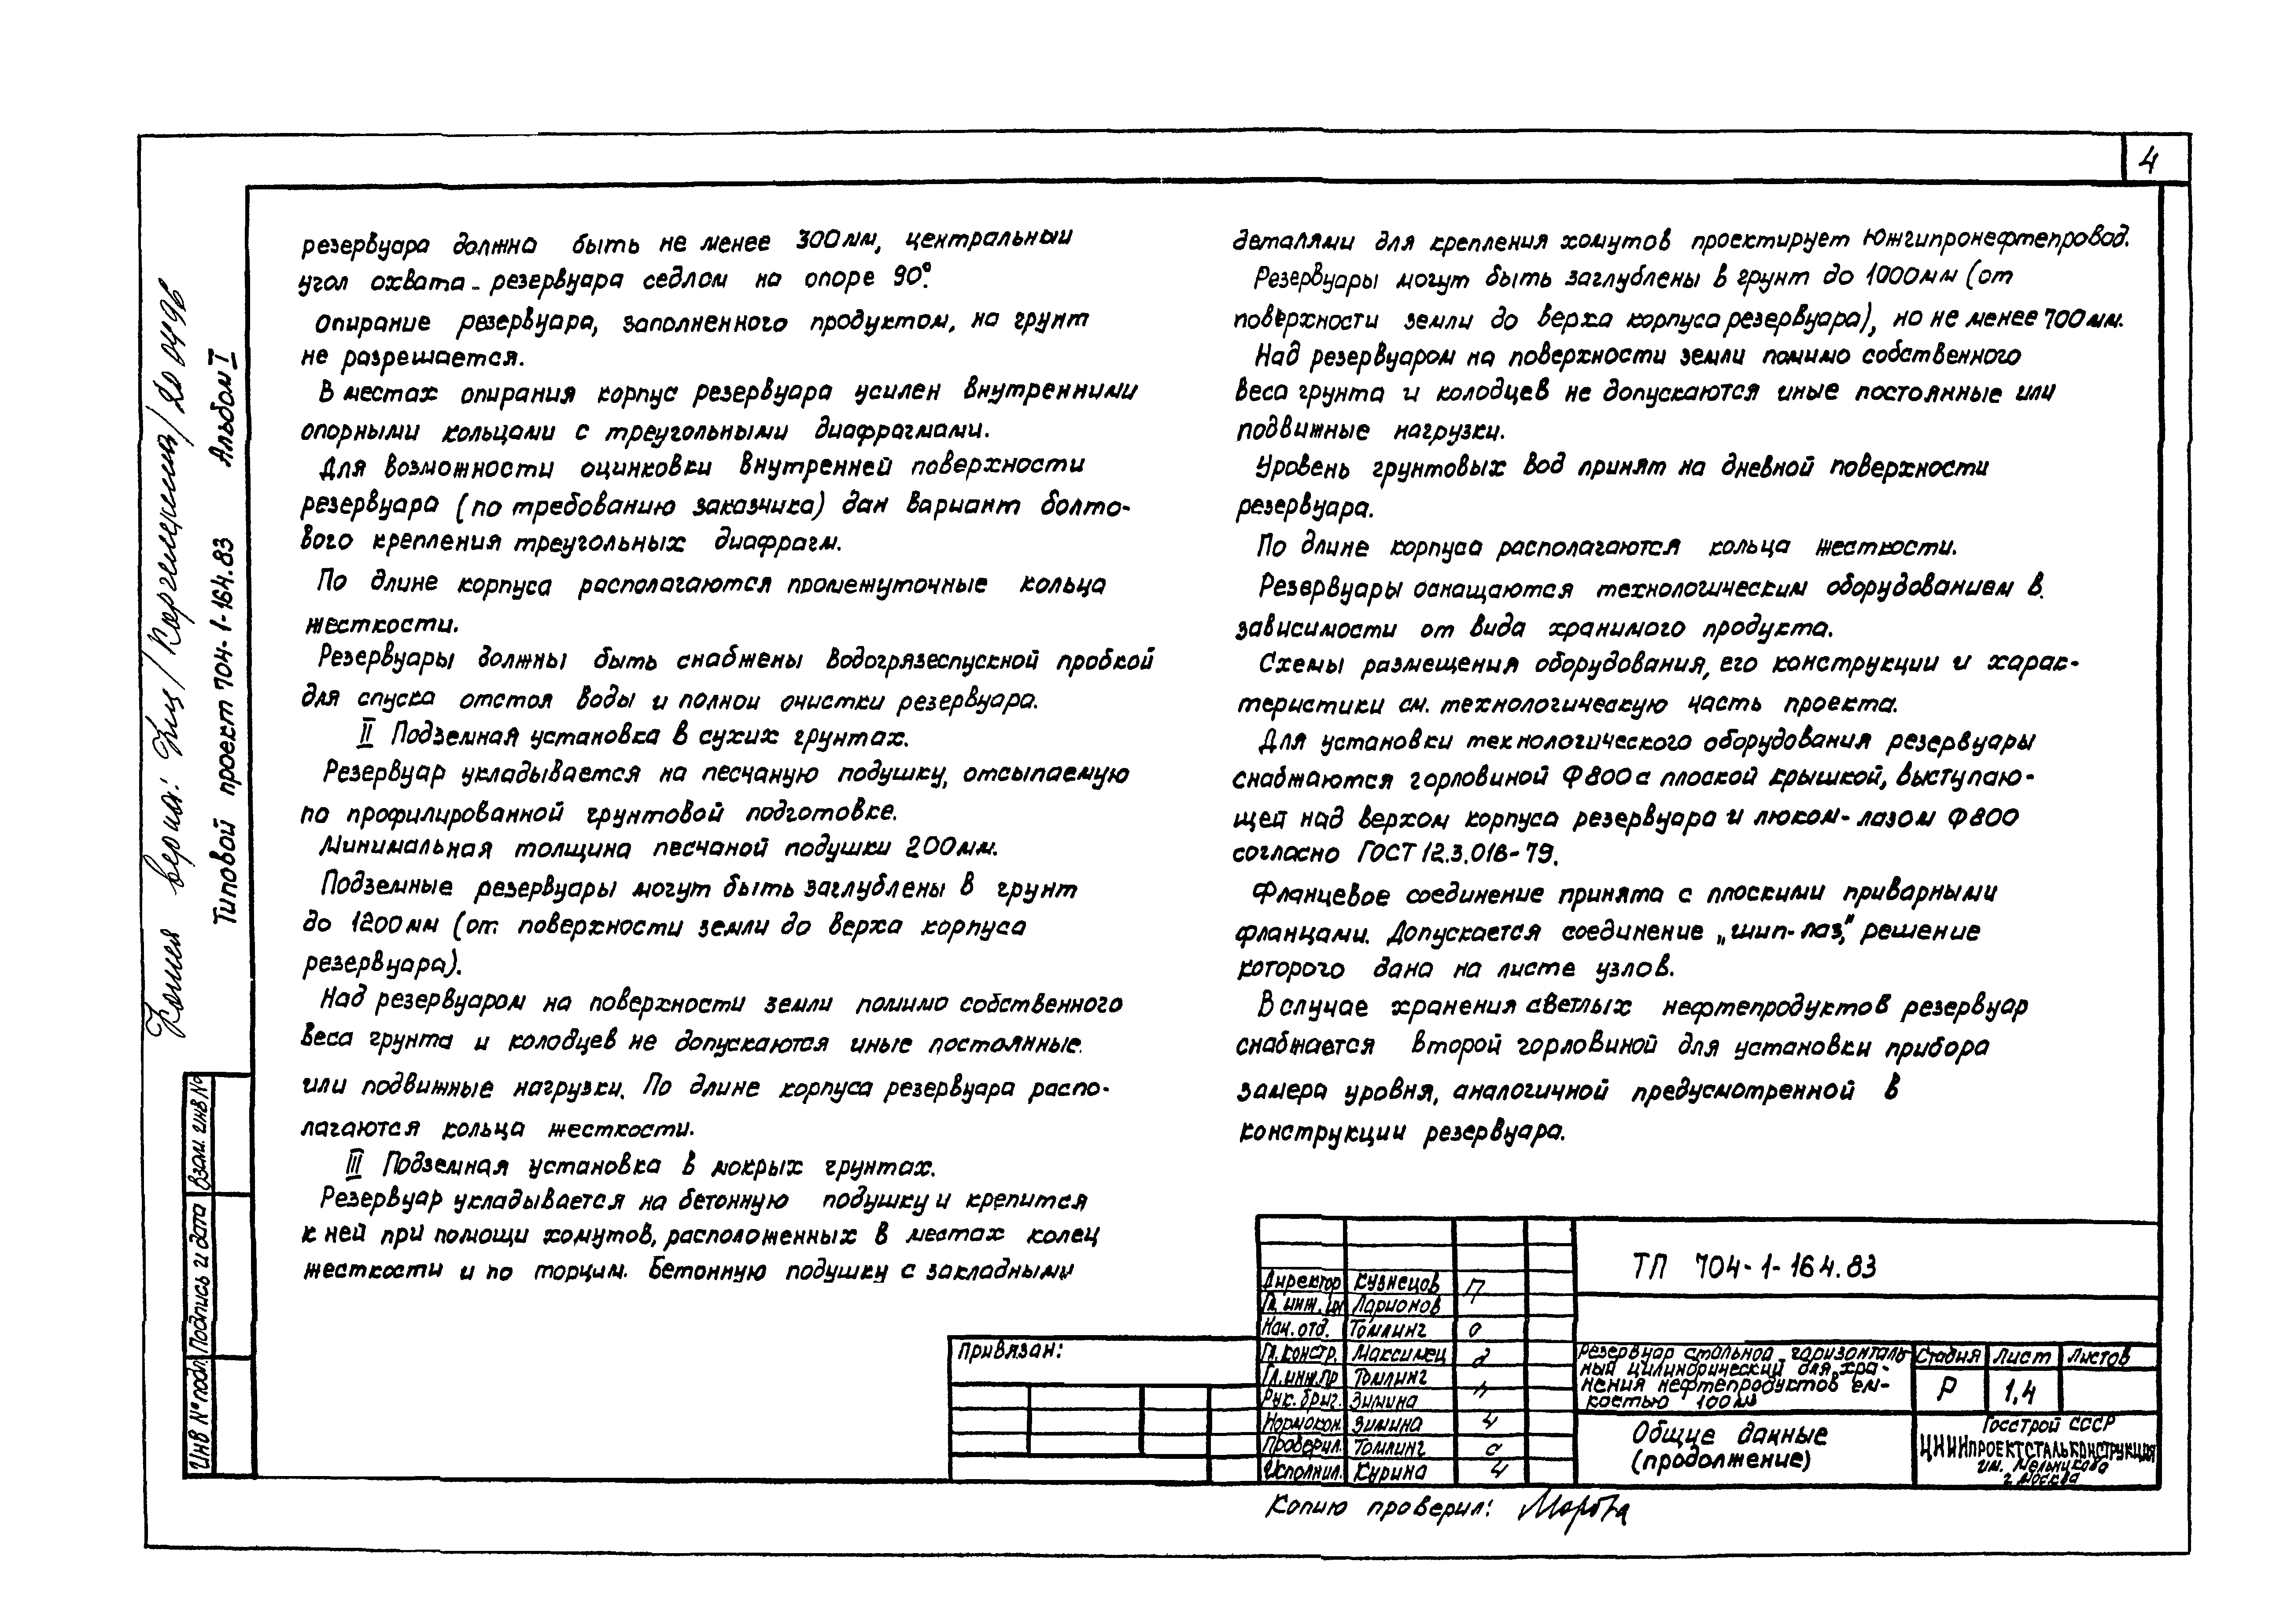 4
резервуара должно быть не менее 300мм, центральный
угол охвата - резервуара седлом на опоре 90°.
Опирание резервуара, заполненного продуктом, на грунт
не разрешается.
В местах опирания корпус резервуара усилен внутренними
опорными кольцами с треугольными диафрагмами.
Для возможности оцинковки внутренней поверхности
резервуара (по требованию заказчика) дан вариант болто-
вого крепления треугольных диафрагм.
По длине корпуса располагаются промежуточные кольца
жесткости.
Резервуары должны быть снабжены водогрязеспускной пробкой
для спуска отстоя воды и полной очистки резервуара.
II Подземная установка в сухих грунтах.
Резервуар укладывается на песчаную подушку, отсыпаемую
по профилированной грунтовой подготовке.
Минимальная толщина песчаной подушки 200мм.
Подземные резервуары могут быть заглублены в грунт
до 1200мм (от поверхности земли до верха корпуса
резервуара).
Над резервуаром на поверхности земли помимо собственного
веса грунта и колодцев не допускаются иные постоянные
или подвижные нагрузки. По длине корпуса резервуара распо-
лагаются кольца жесткости.
III Подземная установка в мокрых грунтах.
Резервуар укладывается на бетонную подушку и крепится
к ней при помощи хомутов, расположенных в местах колец
жесткости и по торцам. Бетонную подушку с закладными
деталями для крепления хомутов проектирует Южгипронефтепровод.
Резервуары могут быть заглублены в грунт до 1000мм (от
поверхности земли до верха корпуса резервуара), но не менее 700мм.
Над резервуаром на поверхности земли помимо собственного
веса грунта и колодцев не допускаются иные постоянные или
подвижные нагрузки.
Уровень грунтовых вод принят на дневной поверхности
резервуара.
По длине корпуса располагаются кольца жесткости.
Резервуары оснащаются технологическим оборудованием в
зависимости от вида хранимого продукта.
Схемы размещения оборудования, его конструкции и харак-
теристики см. технологическую часть проекта.
Для установки технологического оборудования резервуары
снабжаются горловиной Ф800 с плоской крышкой, выступаю-
щей над верхом корпуса резервуара и люком-лазом Ф800
согласно ГОСТ 12.3.016-79.
Фланцевое соединение принято с плоскими приварными
фланцами. Допускается соединение „шип-паз", решение
которого дано на листе узлов.
В случае хранения светлых нефтепродуктов резервуар
снабжается второй горловиной для установки прибора
замера уровня, аналогичной предусмотренной в
конструкции резервуара.
Типовой проект 704-1-164.83 Альбом I
Взам. инв №
Подпись и дата
Инв № подл.
Привязан:
Директор Кузнецов
Гл. инж. ин Ларионов
Нач. отд. Томлинг
Гл. констр. Максимец
Гл. инж. пр Томлинг
Рук. бриг. Зимина
Нормокон. Зимина
Проверил. Томлинг
Исполнил. Курина
ТП 704-1-164.83
Резервуар стальной горизонталь
ный цилиндрический для хра-
нения нефтепродуктов ем-
костью 100м³
Стадия Лист Листов
Р 1,4
Общие данные
(продолжение)
Госстрой СССР
ЦНИИПРОЕКТСТАЛЬКОНСТРУКЦИЯ
им. Мельникова
г. Москва
Копию проверил: